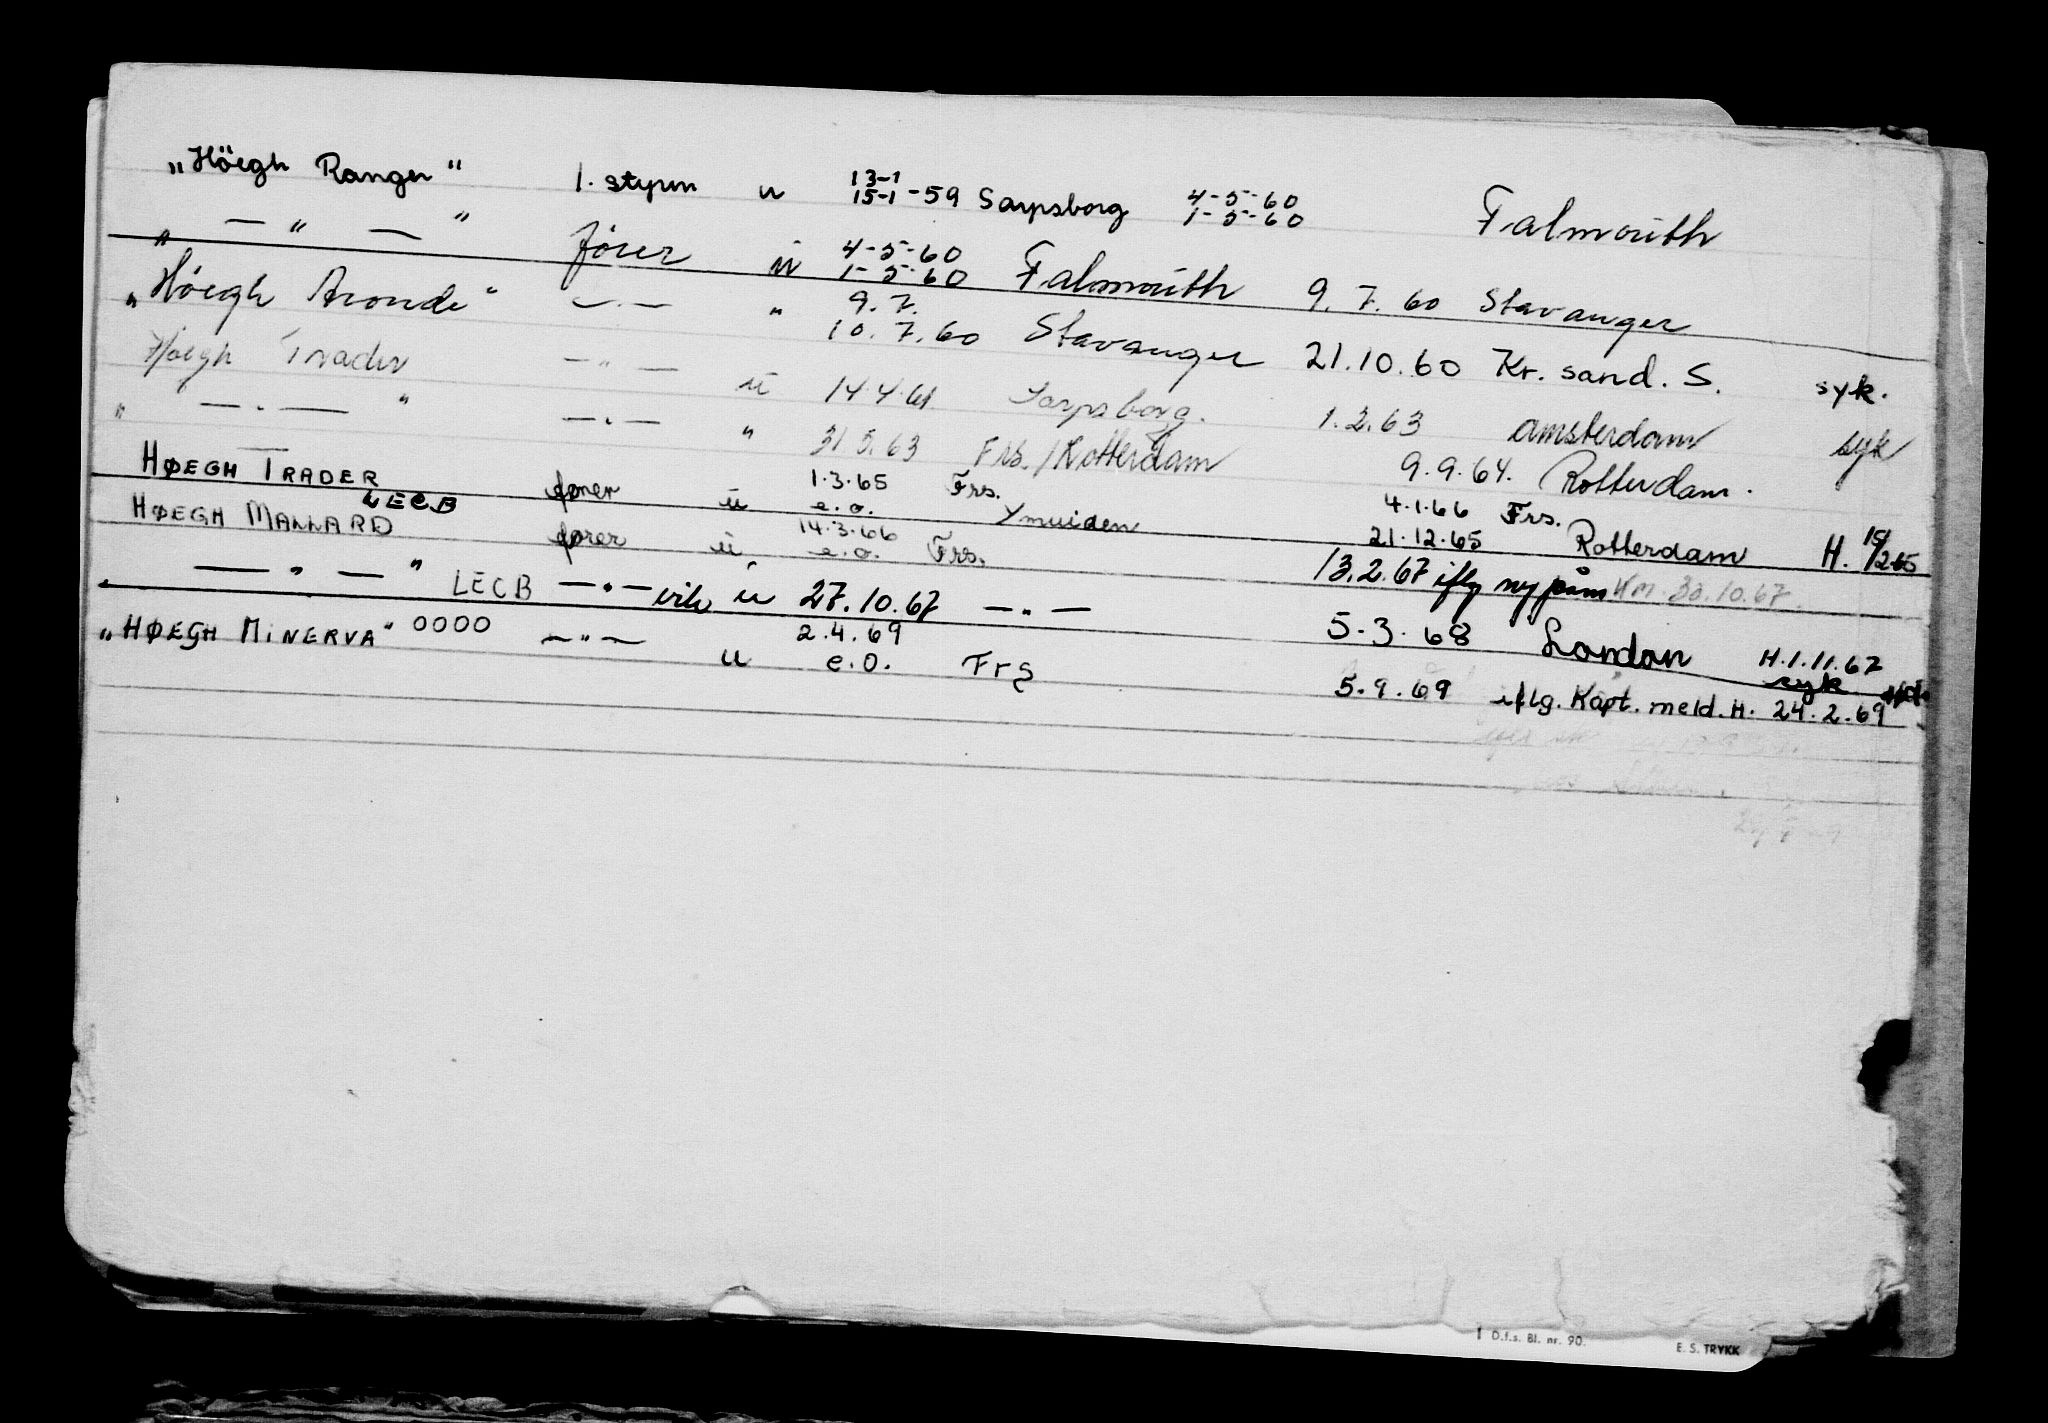 „Höegh Ranger" 1. styrm u 13-1 15-1-59 Sarpsborg 4-5-60 1-5-60 Falmouth
„ — " — " förer u 4-5-60 1-5-60 Falmouth 9.7.60 Stavanger
„Höegh Aronde" — . — " 9.7. 10.7.60 Stavanger 21.10.60 Kr. sand. S. syk.
Höegh Trader — " — u 14.4.61 Sarpsborg. 1.2.63 Amsterdam syk
„ — . — " — . — " 31.5.63 Frs./Rotterdam 9.9.64. Rotterdam.
HØEGH TRADER fører u 1.3.65 e.o. Frs. Ymuiden 4.1.66 Frs. 21.12.65 Rotterdam H. 15/2-65
HØEGH MALLARD LECB fører u 14.3.66 e.o. Frs. 13.2.67 iflg ny HM. 30.10.67.
— " — " LECB — . — u 27.10.67 — . — 5-3-68 London H.1.11.67 syk
„HØEGH MINERVA" OOOO — " — u 2.4.69 e.o. Frs 5.9.69 iflg. Kapt. meld. H. 24.2.69
D.f.s. Bl. nr. 90.
E. S. TRYKK